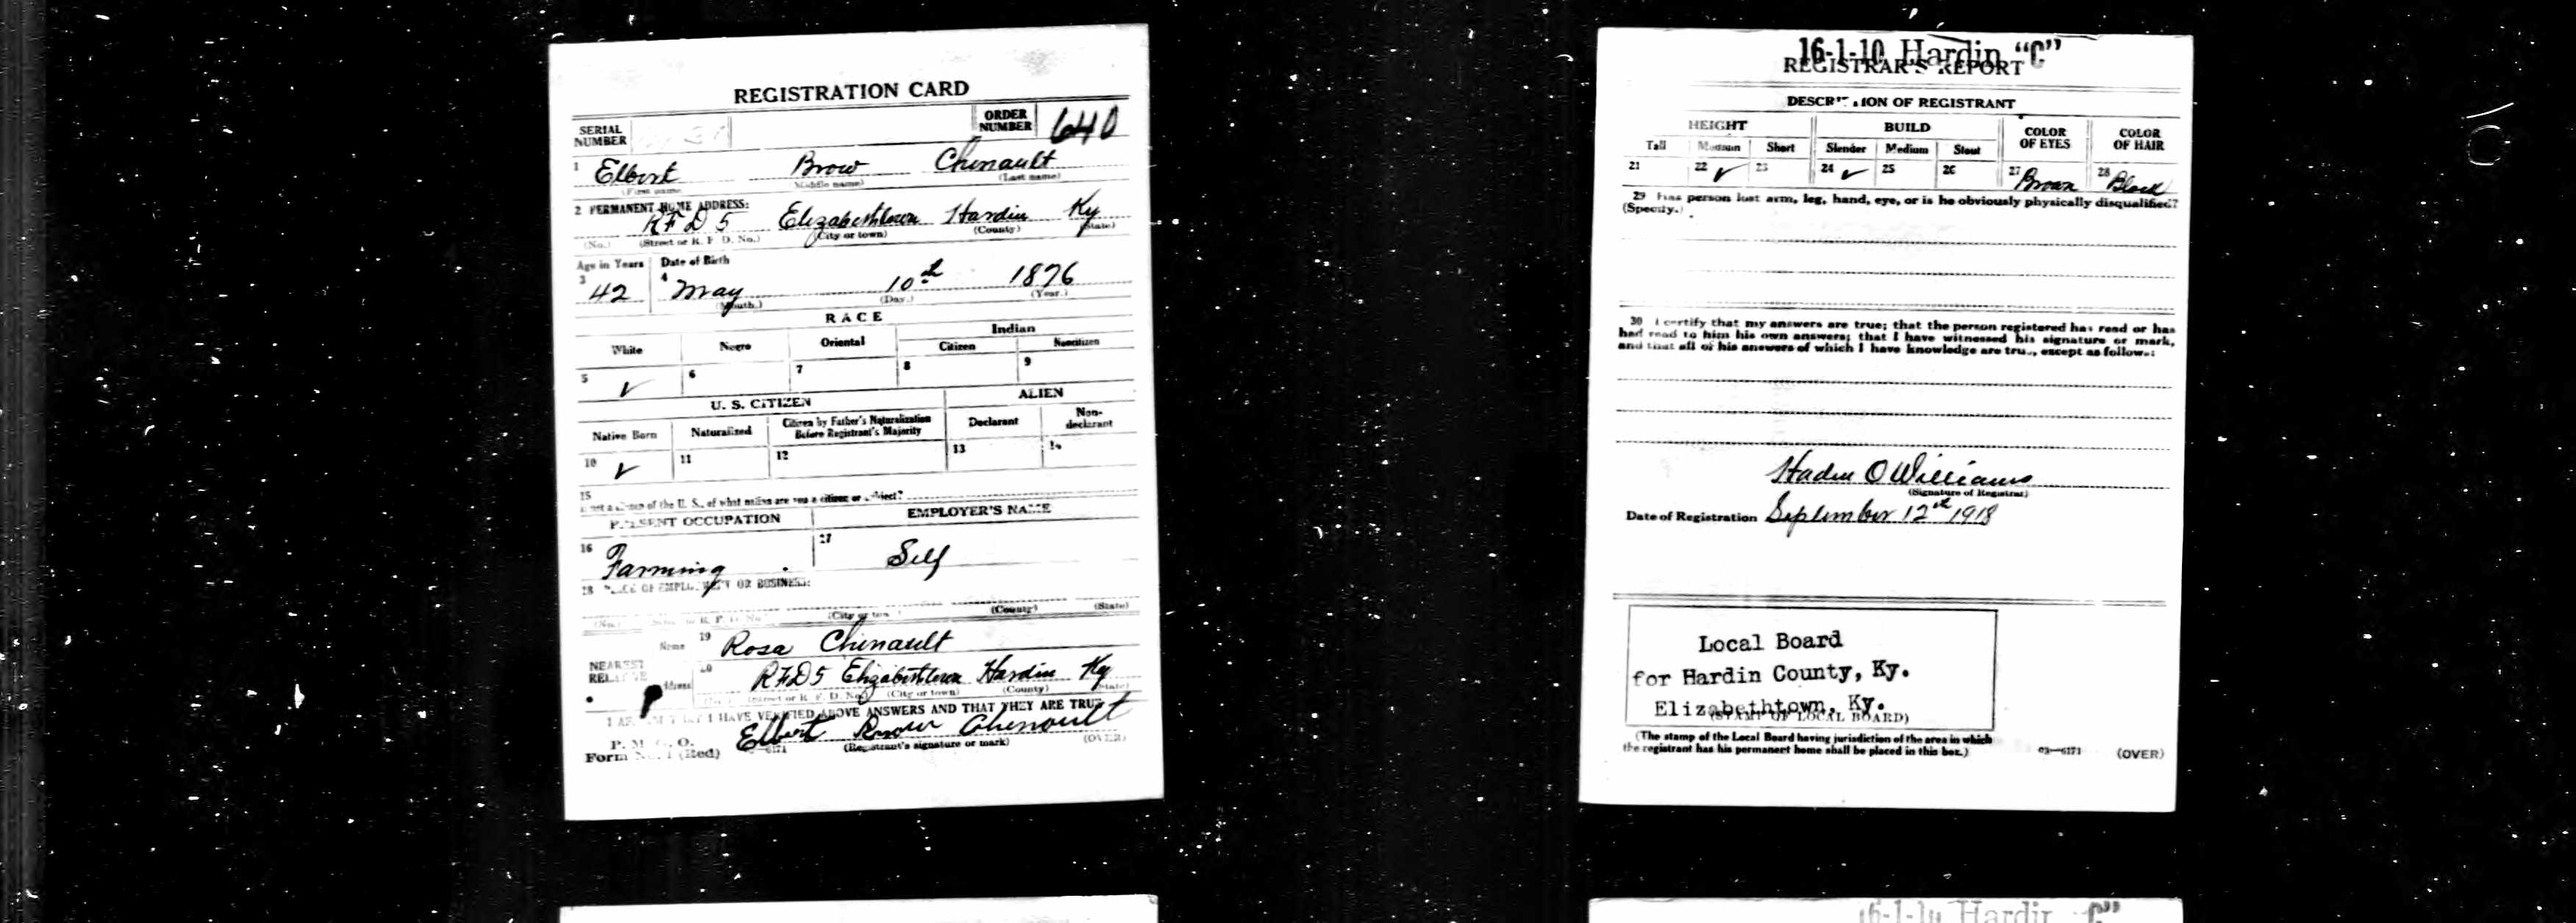 REGISTRATION CARD
SERIAL NUMBER
ORDER NUMBER 640
1 Elbert Brow Chinault
(First name) (Middle name) (Last name)
2 PERMANENT HOME ADDRESS:
RFD 5 Elizabethtown Hardin Ky
(No.) (Street or R. F. D. No.) (City or town) (County) (State)
Age in Years Date of Birth
3 42 4 May 10th 1876
(Month.) (Day.) (Year.)
RACE
White Negro Oriental Indian
Citizen Noncitizen
5 ✓ 6 7 8 9
U. S. CITIZEN ALIEN
Native Born Naturalized Citizen by Father's Naturalization Before Registrant's Majority Declarant Non-declarant
10 ✓ 11 12 13 14
15
of the U. S., of what nation are you a citizen or subject?
PRESENT OCCUPATION EMPLOYER'S NAME
16 Farming 17 Self
18 PLACE OF EMPLOYMENT OR BUSINESS:
(No.) (City or town) (County) (State)
NEAREST RELATIVE
Name 19 Rosa Chinault
Address 20 RFD 5 Elizabethtown Hardin Ky
(Street or R. F. D. No.) (City or town) (County) (State)
I AFFIRM THAT I HAVE VERIFIED ABOVE ANSWERS AND THAT THEY ARE TRUE
P. M. G. O.
Form No. 1 (Red) Elbert Brow Chenault
(Registrant's signature or mark) (OVER)
16-1-10 Hardin "C"
REGISTRAR'S REPORT
DESCRIPTION OF REGISTRANT
HEIGHT BUILD COLOR OF EYES COLOR OF HAIR
Tall Medium Short Slender Medium Stout
21 22 ✓ 23 24 ✓ 25 26 27 Brown 28 Black
29 Has person lost arm, leg, hand, eye, or is he obviously physically disqualified?
(Specify.)
30 I certify that my answers are true; that the person registered has read or has
had read to him his own answers; that I have witnessed his signature or mark,
and that all of his answers of which I have knowledge are true, except as follows:
O Williams
(Signature of Registrar)
Date of Registration September 12th 1918
Local Board
for Hardin County, Ky.
Elizabethtown, Ky.
(STAMP OF LOCAL BOARD)
(The stamp of the Local Board having jurisdiction of the area in which
the registrant has his permanent home shall be placed in this box.)
03—6171 (OVER)
16-1-10 Hardin "C"